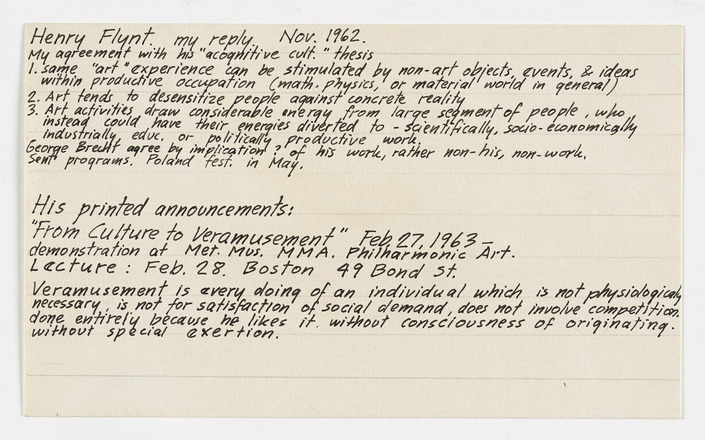 Henry Flynt. my reply. Nov. 1962.
My agreement with his "acognitive cult." thesis
1. same "art" experience can be stimulated by non-art objects, events, & ideas
within productive occupation (math. physics, or material world in general)
2. Art tends to desensitize people against concrete reality
3. Art activities draw considerable energy from large segment of people, who,
instead could have their energies diverted to - scientifically, socio-economically
industrially, educ. or politically productive work.
George Brecht agree by implication? of his work, rather non-his, non-work.
Sent programs. Poland fest. in May.
His printed announcements:
"From Culture to Veramusement" Feb. 27, 1963 —
demonstration at Met. Mus. MMA. Philharmonic Art.
Lecture: Feb. 28. Boston 49 Bond St.
Veramusement is every doing of an individual which is not physiologically
necessary, is not for satisfaction of social demand, does not involve competition.
done entirely because he likes it. without consciousness of originating.
without special exertion.